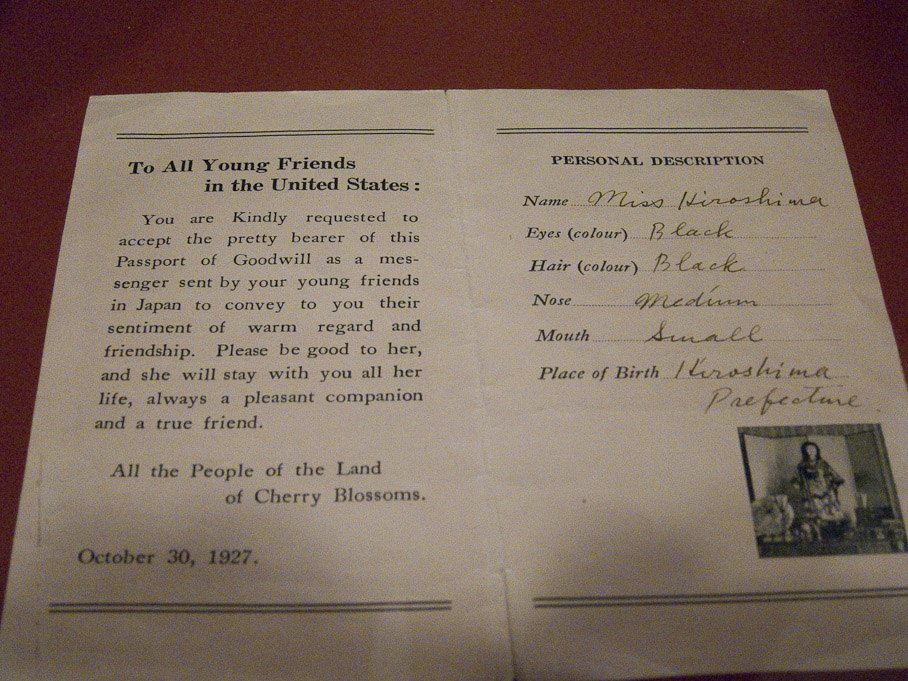 To All Young Friends
in the United States:
You are Kindly requested to
accept the pretty bearer of this
Passport of Goodwill as a mes-
senger sent by your young friends
in Japan to convey to you their
sentiment of warm regard and
friendship. Please be good to her,
and she will stay with you all her
life, always a pleasant companion
and a true friend.
All the People of the Land
of Cherry Blossoms.
October 30, 1927.
PERSONAL DESCRIPTION
Name Miss Hiroshima
Eyes (colour) Black
Hair (colour) Black
Nose Medium
Mouth Small
Place of Birth Hiroshima
Prefecture.